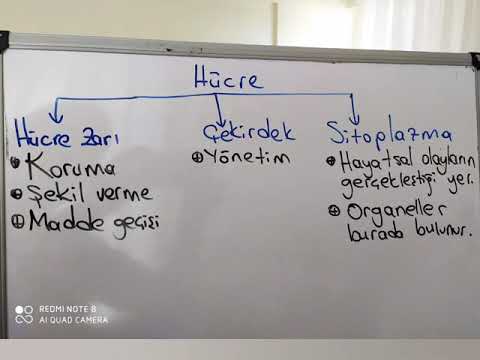 Hücre
Hücre Zarı
Koruma
Şekil verme
Madde geçişi
Çekirdek
Yönetim
Sitoplazma
Hayatsal olayların
gerçekleştiği yer.
Organeller
burada bulunur.
REDMI NOTE 8
AI QUAD CAMERA